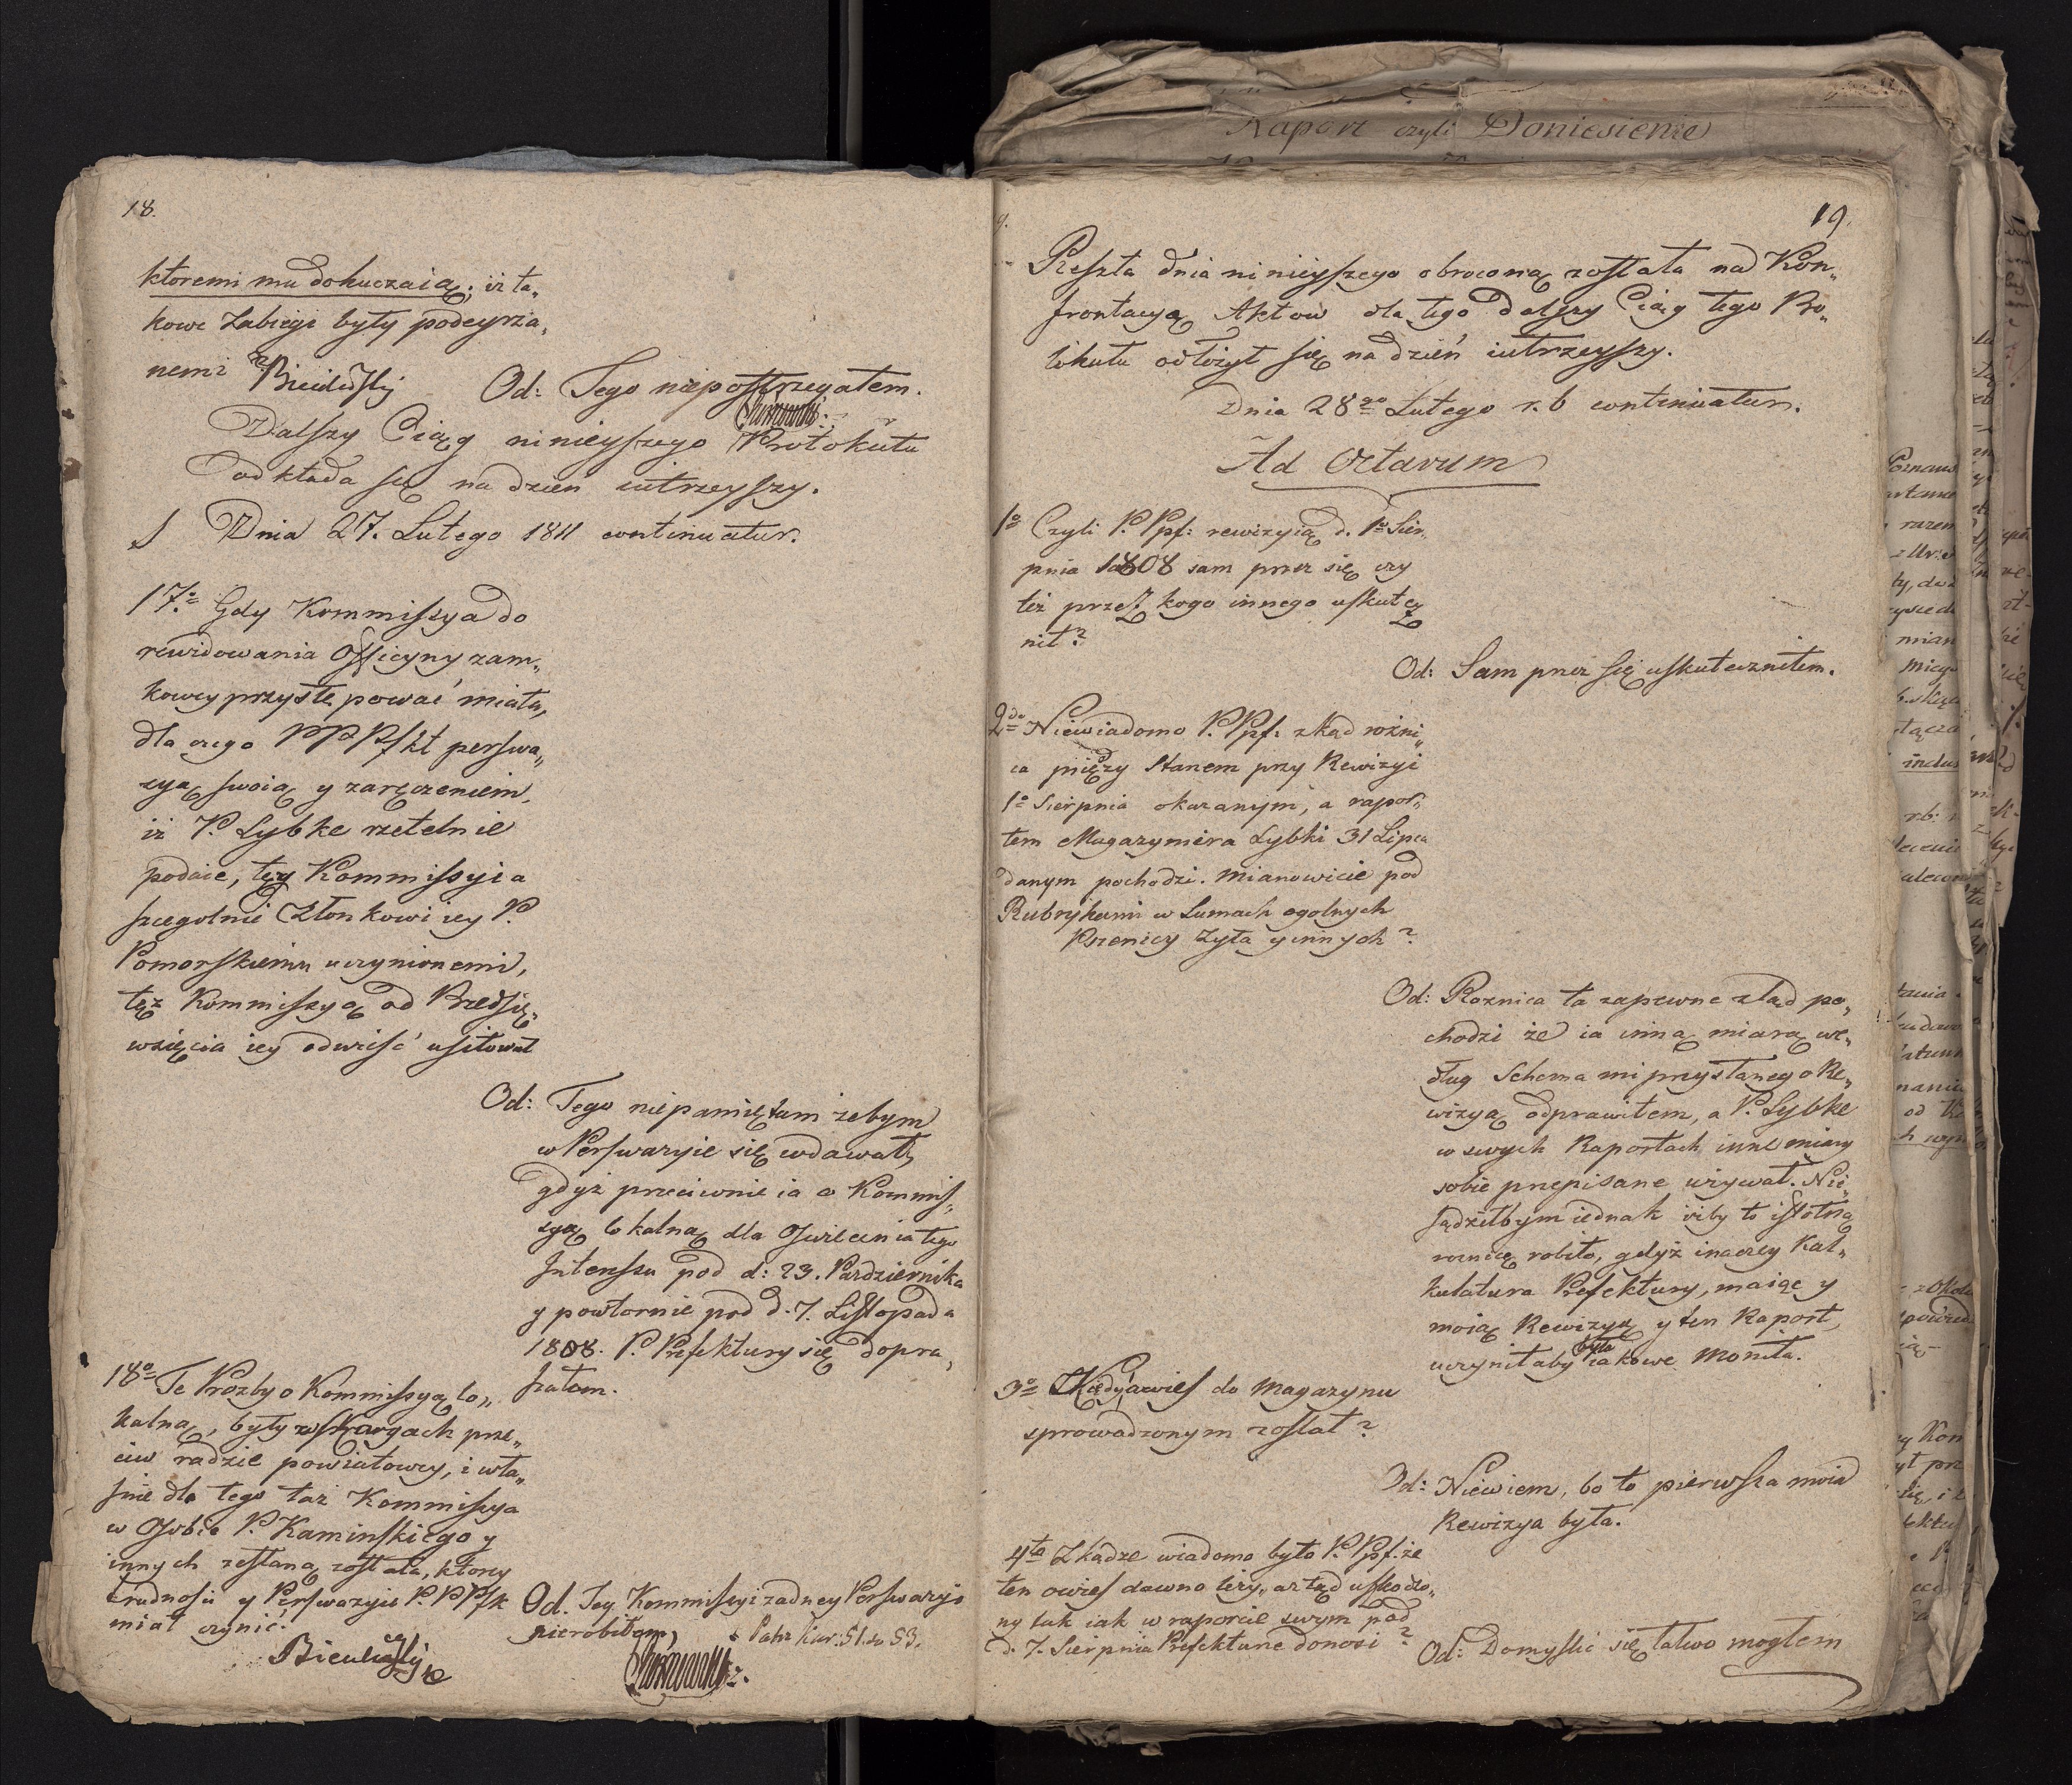 18.
ktoremi mu dokuczaią; iż ta„
kowe Zabiegi były podeyrza„
nemi
Od: Tego niepostrzegałem.
Dalszy Ciąg ninieyszego Protokułu
odkłada się na dzien iutrzeyszy.
Dnia 27. Lutego 1811 continuatur.
17.o Gdy Kommissya do
rewidowania Officyny zam„
kowey przystępować miała,
dla czego PPPfkt perswa„
zyą swoią y zaręczeniem,
iż P. Lybke rzetelnie
podaie, tey Kommissyi a
szczegolnie Członkowi iey P.
Pomorskiemu uczynionemi,
tęż Kommissyą od Przedsię„
wzięcia iey odwiść usiłował
Od: Tego niepamiętam żebym
w Perswazyie się wdawał,
gdyż przeciwnie ia o Kommis„
syą lokalną dla Oświecenia tego
Interessu pod d: 23. Pazdziernika
y powtornie pod d. 7. Listopada
1808. P. Prefektury się dopra„
szałem.
18o Te Prozby o Kommissyą lo„
kalną, były w skargach prze„
ciw radzie powiatowey, i wła„
snie dla tego taż Kommissya
w Osobie P. Kaminskiego y
innych zesłaną została, ktorey
trudnosci y Perswazyie P. PPfk
miał czynić?
Od. Tey Kommissyi zadney Perswazyi
nierobiłem,
51. do 53.
19.
Reszta dnia ninieyszego obrocona została nad Kon„
frontacyą Aktow dla tego dalszy Ciąg tego Pro„
tokułu odłożył się na dzień iutrzeyszy.
Dnia 28go Lutego r. b continuatur.
Ad Octavum
1o Czyli P. Ppf: rewizyią d. 1o Sier„
pnia 1808 sam przez się czy
też przez kogo innego uskutecz
nił?
Od: Sam przez się uskuteczniłem.
2do Niewiadomo P. Ppf: zkąd rożni„
ca między Stanem przy Rewizyi
1o Sierpnia okazanym, a rapor„
tem Magazyniera Lybki 31 Lipca
danym pochodzi. mianowicie pod
Rubrykami w Sumach ogolnych
Pszenicy Żyta y innych?
Od: Roznica ta zapewne ztąd po„
chodzi że ia inną miarą we„
dług Schema mi przysłanego Re„
wizyą odprawiłem, a P. Lybke
w swych Raportach inne miary
sobie przepisane używał. Nie
sądziłbym iednak iżby to istotną
roznicę robiło, gdyż inaczey Kal„
kulatura Prefektury, maiąc y
moią Rewizyą y ten Raport,
uczyniłaby była takowe Monita.
3o Kiedy owies do Magazynu
sprowadzonym został?
Od: Niewiem, bo to pierwsza moia
Rewizya była.
4ta Zkądze wiadomo było P. Ppf. że
ten owies dawno leży, a ztąd uszkodzo„
ny tak iak w raporcie swym pod
d. 7. Sierpnia Prefekturze donosi?
Od: Domyslić się łatwo mogłem
Raport czyli Doniesienie